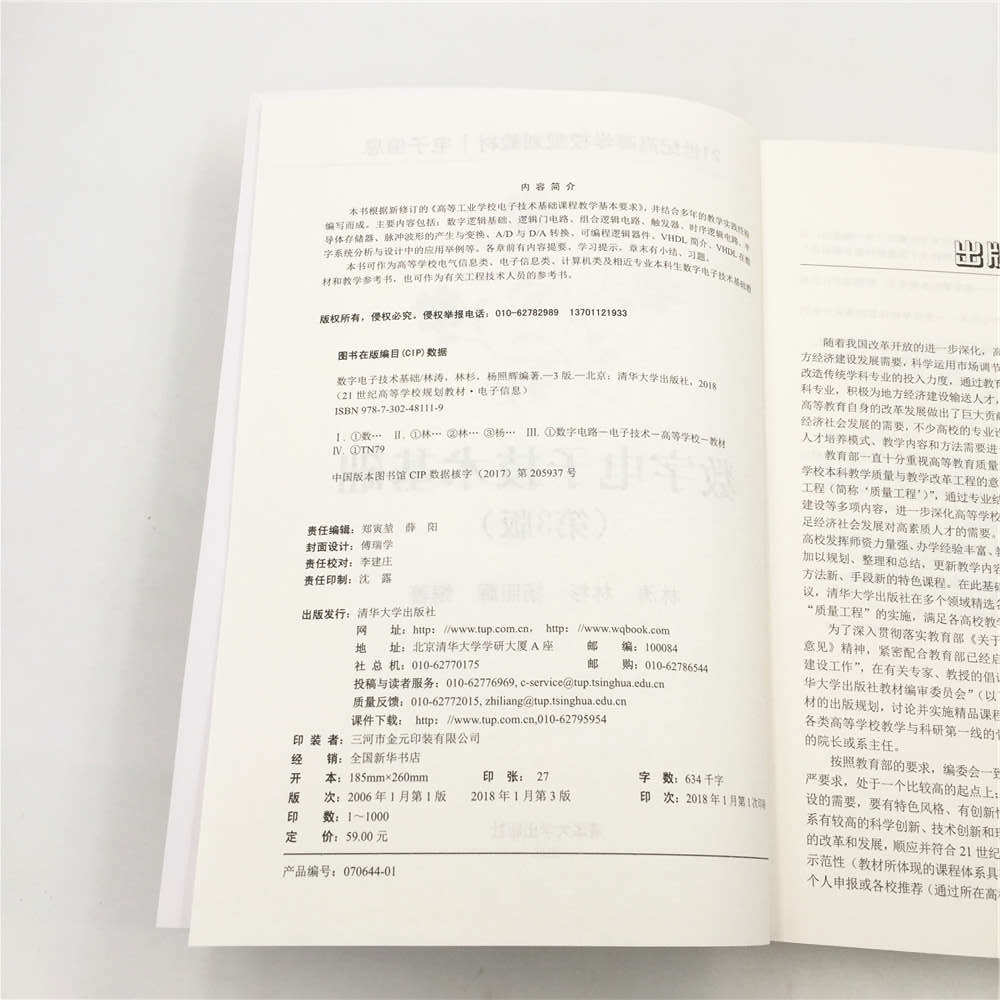 内 容 简 介
本书根据新修订的《高等工业学校电子技术基础课程教学基本要求》，并结合多年的教学实践经验
编写而成。主要内容包括：数字逻辑基础、逻辑门电路、组合逻辑电路、触发器、时序逻辑电路、半
导体存储器、脉冲波形的产生与变换、A/D 与 D/A 转换、可编程逻辑器件、VHDL 简介、VHDL 在数
字系统分析与设计中的应用举例等。各章前有内容提要、学习提示，章末有小结、习题。
本书可作为高等学校电气信息类、电子信息类、计算机类及相近专业本科生数字电子技术基础教
材和教学参考书，也可作为有关工程技术人员的参考书。
版权所有，侵权必究。侵权举报电话：010-62782989 13701121933
图书在版编目(CIP)数据
数字电子技术基础/林涛，林杉，杨照辉编著.—3 版.—北京：清华大学出版社，2018
（21 世纪高等学校规划教材·电子信息）
ISBN 978-7-302-48111-9
Ⅰ. ①数… Ⅱ. ①林… ②林… ③杨… Ⅲ. ①数字电路－电子技术－高等学校－教材
Ⅳ. ①TN79
中国版本图书馆 CIP 数据核字（2017）第 205937 号
责任编辑：郑寅堃 薛 阳
封面设计：傅瑞学
责任校对：李建庄
责任印制：沈 露
出版发行：清华大学出版社
网 址：http: //www.tup.com.cn， http: //www.wqbook.com
地 址：北京清华大学学研大厦 A 座 邮 编：100084
社 总 机：010-62770175 邮 购：010-62786544
投稿与读者服务：010-62776969, c-service@tup.tsinghua.edu.cn
质量反馈：010-62772015, zhiliang@tup.tsinghua.edu.cn
课件下载： http: //www.tup.com.cn,010-62795954
印 装 者：三河市金元印装有限公司
经 销：全国新华书店
开 本：185mm×260mm 印 张：27 字 数：634 千字
版 次：2006 年 1 月第 1 版 2018 年 1 月第 3 版 印 次：2018 年 1 月第 1 次印刷
印 数：1～1000
定 价：59.00 元
产品编号：070644-01
出版
随着我国改革开放的进一步深化，高
方经济建设发展需要，科学运用市场调节
改造传统学科专业的投入力度，通过教育
科专业，积极为地方经济建设输送人才，
高等教育自身的改革发展做出了巨大贡献
经济社会发展的需要，不少高校的专业设
人才培养模式、教学内容和方法需要进一
教育部一直十分重视高等教育质量
学校本科教学质量与教学改革工程的意
工程（简称‘质量工程’）”，通过专业结
建设等多项内容，进一步深化高等学校
足经济社会发展对高素质人才的需要。
高校发挥师资力量强、办学经验丰富、教
加以规划、整理和总结，更新教学内容
方法新、手段新的特色课程。在此基础
议，清华大学出版社在多个领域精选各
“质量工程”的实施，满足各高校教学
为了深入贯彻落实教育部《关于
意见》精神，紧密配合教育部已经启
建设工作”，在有关专家、教授的倡议
华大学出版社教材编审委员会”（以
材的出版规划，讨论并实施精品课程
各类高等学校教学与科研第一线的骨
的院长或系主任。
按照教育部的要求，编委会一致
严要求，处于一个比较高的起点上；
设的需要，要有特色风格、有创新性
系有较高的科学创新、技术创新和理
的改革和发展，顺应并符合 21 世纪
示范性（教材所体现的课程体系具
个人申报或各校推荐（通过所在高校